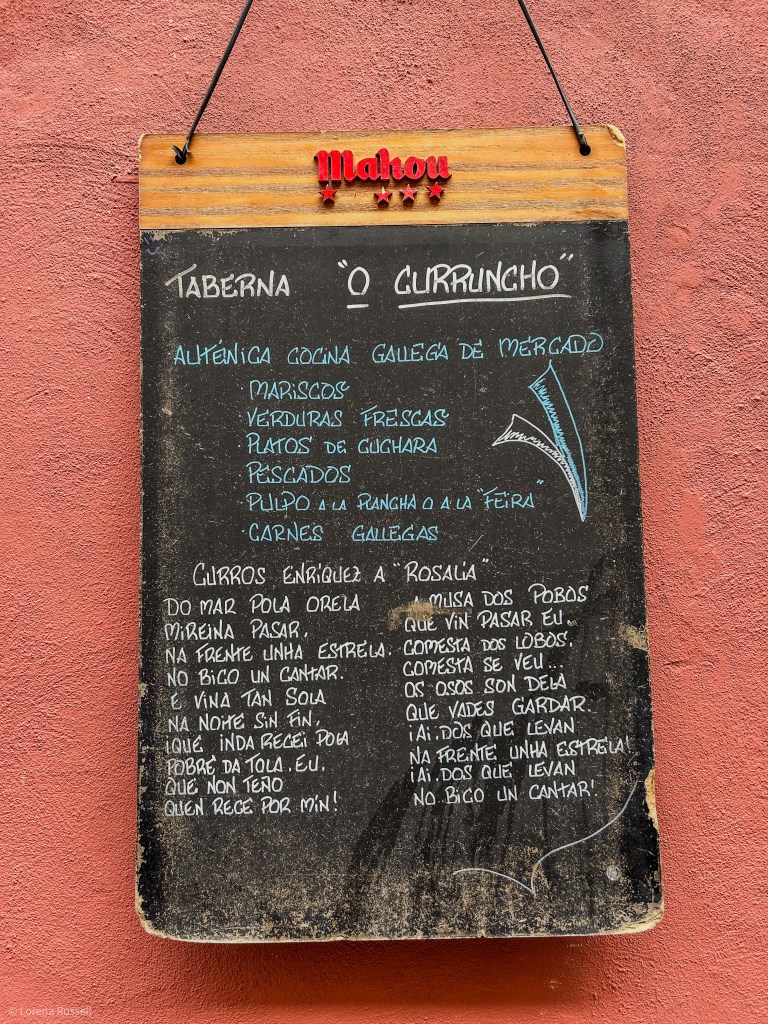 Mahou
TABERNA "O CURRUNCHO"
AUTÉNICA COCINA GALLEGA DE MERCADO
· MARISCOS
· VERDURAS FRESCAS
· PLATOS DE CUCHARA
· PESCADOS
· PULPO A LA PLANCHA O A LA "FEIRA"
· CARNES GALLEGAS
CURROS ENRIQUEZ A "ROSALIA"
DO MAR POLA ORELA
MIREINA PASAR,
NA FRENTE UNHA ESTRELA.
NO BICO UN CANTAR.
E VINA TAN SOLA
NA NOITE SIN FIN,
¡QUE INDA RECEI POLA
POBRE DA TOLA, EU,
QUE NON TEÑO
QUEN RECE POR MIN!
A MUSA DOS POBOS
QUE VIN PASAR EU.
COMESTA DOS LOBOS,
COMESTA SE VEU...
OS OSOS SON DELA
QUE VADES GARDAR.
¡AI, DOS QUE LEVAN
NA FRENTE UNHA ESTRELA!
¡AI, DOS QUE LEVAN
NO BICO UN CANTAR!
© Lorena Russell